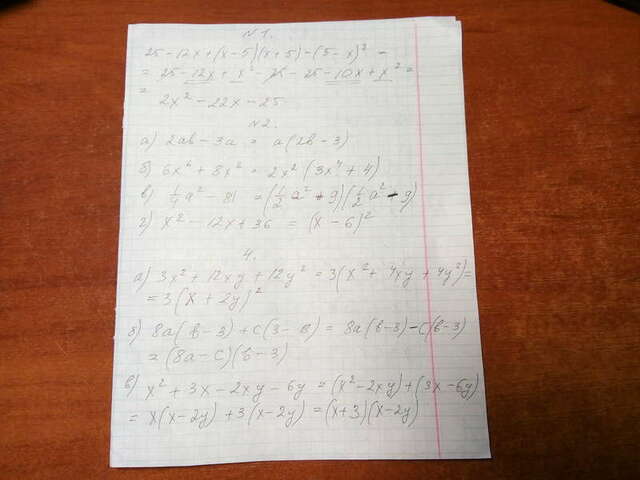 N 1.
25 - 12x + (x - 5)(x + 5) - (5 - x)² =
= 25 - 12x + x² - 25 - 25 - 10x + x² =
=
2x² - 22x - 25
N 2.
а) 2ab - 3a = a(2b - 3)
б) 6x⁶ + 8x² = 2x² (3x⁴ + 4)
в) 1/4 a² - 81 = (1/2 a² + 9)(1/2 a² - 9)
г) x² - 12x + 36 = (x - 6)²
4.
а) 3x² + 12xy + 12y² = 3(x² + 4xy + 4y²) =
= 3(x + 2y)²
б) 8a(b - 3) + c(3 - b) = 8a(b - 3) - c(b - 3)
= (8a - c)(b - 3)
в) x² + 3x - 2xy - 6y = (x² - 2xy) + (3x - 6y)
= x(x - 2y) + 3(x - 2y) = (x + 3)(x - 2y)